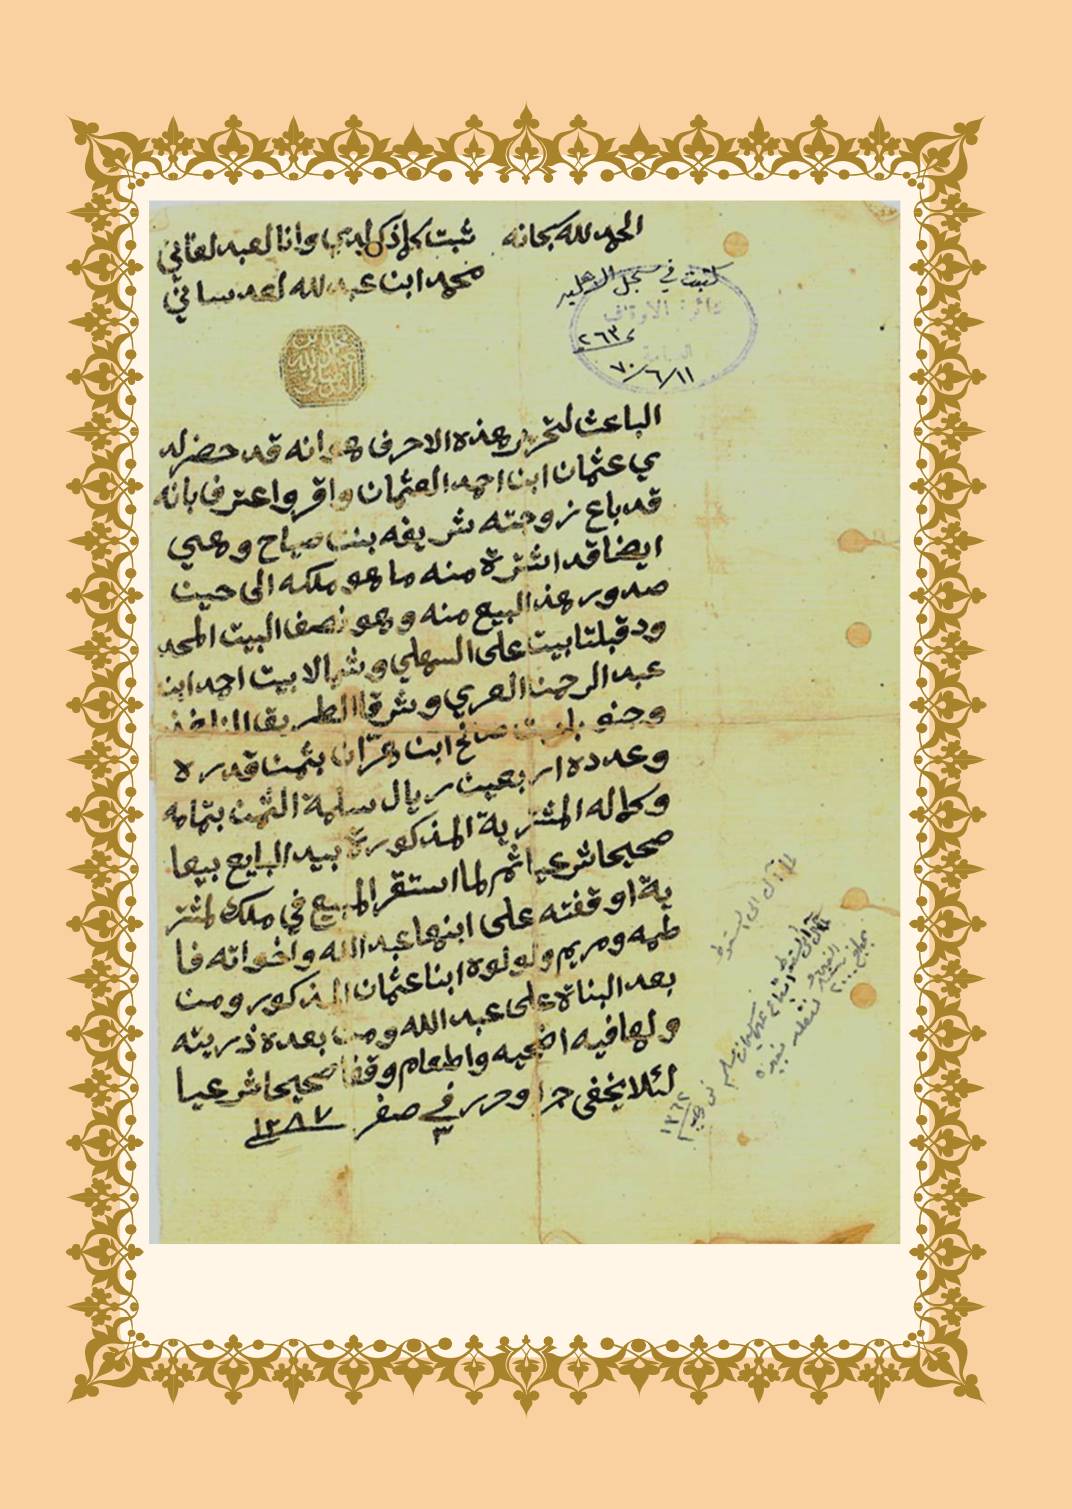 الحمد لله سبحانه
ثبت كلما ذكر لدي وانا العبد لفاني
محمد ابن عبد لله لعدساني
كتبت في سجل الاهليه
دائرة الاوقاف
العامة
٢٦٣
٧٠/٦/١١
الباعث لتحرير هذه الاحرف هو انه قد حضر لد
ي عثمان ابن احمد العثمان واقر واعترف بانه
قد باع زوجته شريفه بنت صياح وهي
ايضا قد اشترة منه ما هو ملكه الى حين
صدور هذ البيع منه وهو نصف البيت المحد
ود قبلتا بيت على السهلي وشمالا بيت احمد ابن
عبد الرحمن العري وشرقا الطريق النافذ
وجنوبا بيت صالح ابن هزان بثمن قدره
وعدده اربعين ريال سلمة الثمن بتمامه
وكماله المشترية المذكورة بيد البايع بيعا
صحيحا شرعيا ثم لما استقر المبيع في ملك لمشتر
ية اوقفته على ابنها عبد الله واخواته فا
طمه ومريم ولولوه ابنا عثمان المذكور ومن
بعد البناة على عبد الله ومن بعده ذريته
ولها فيه اضحيه واطعام وقفا صحيحا شرعيا
لئلا يخفى جرا وحرر في ٣ صفر ١٢٨٧